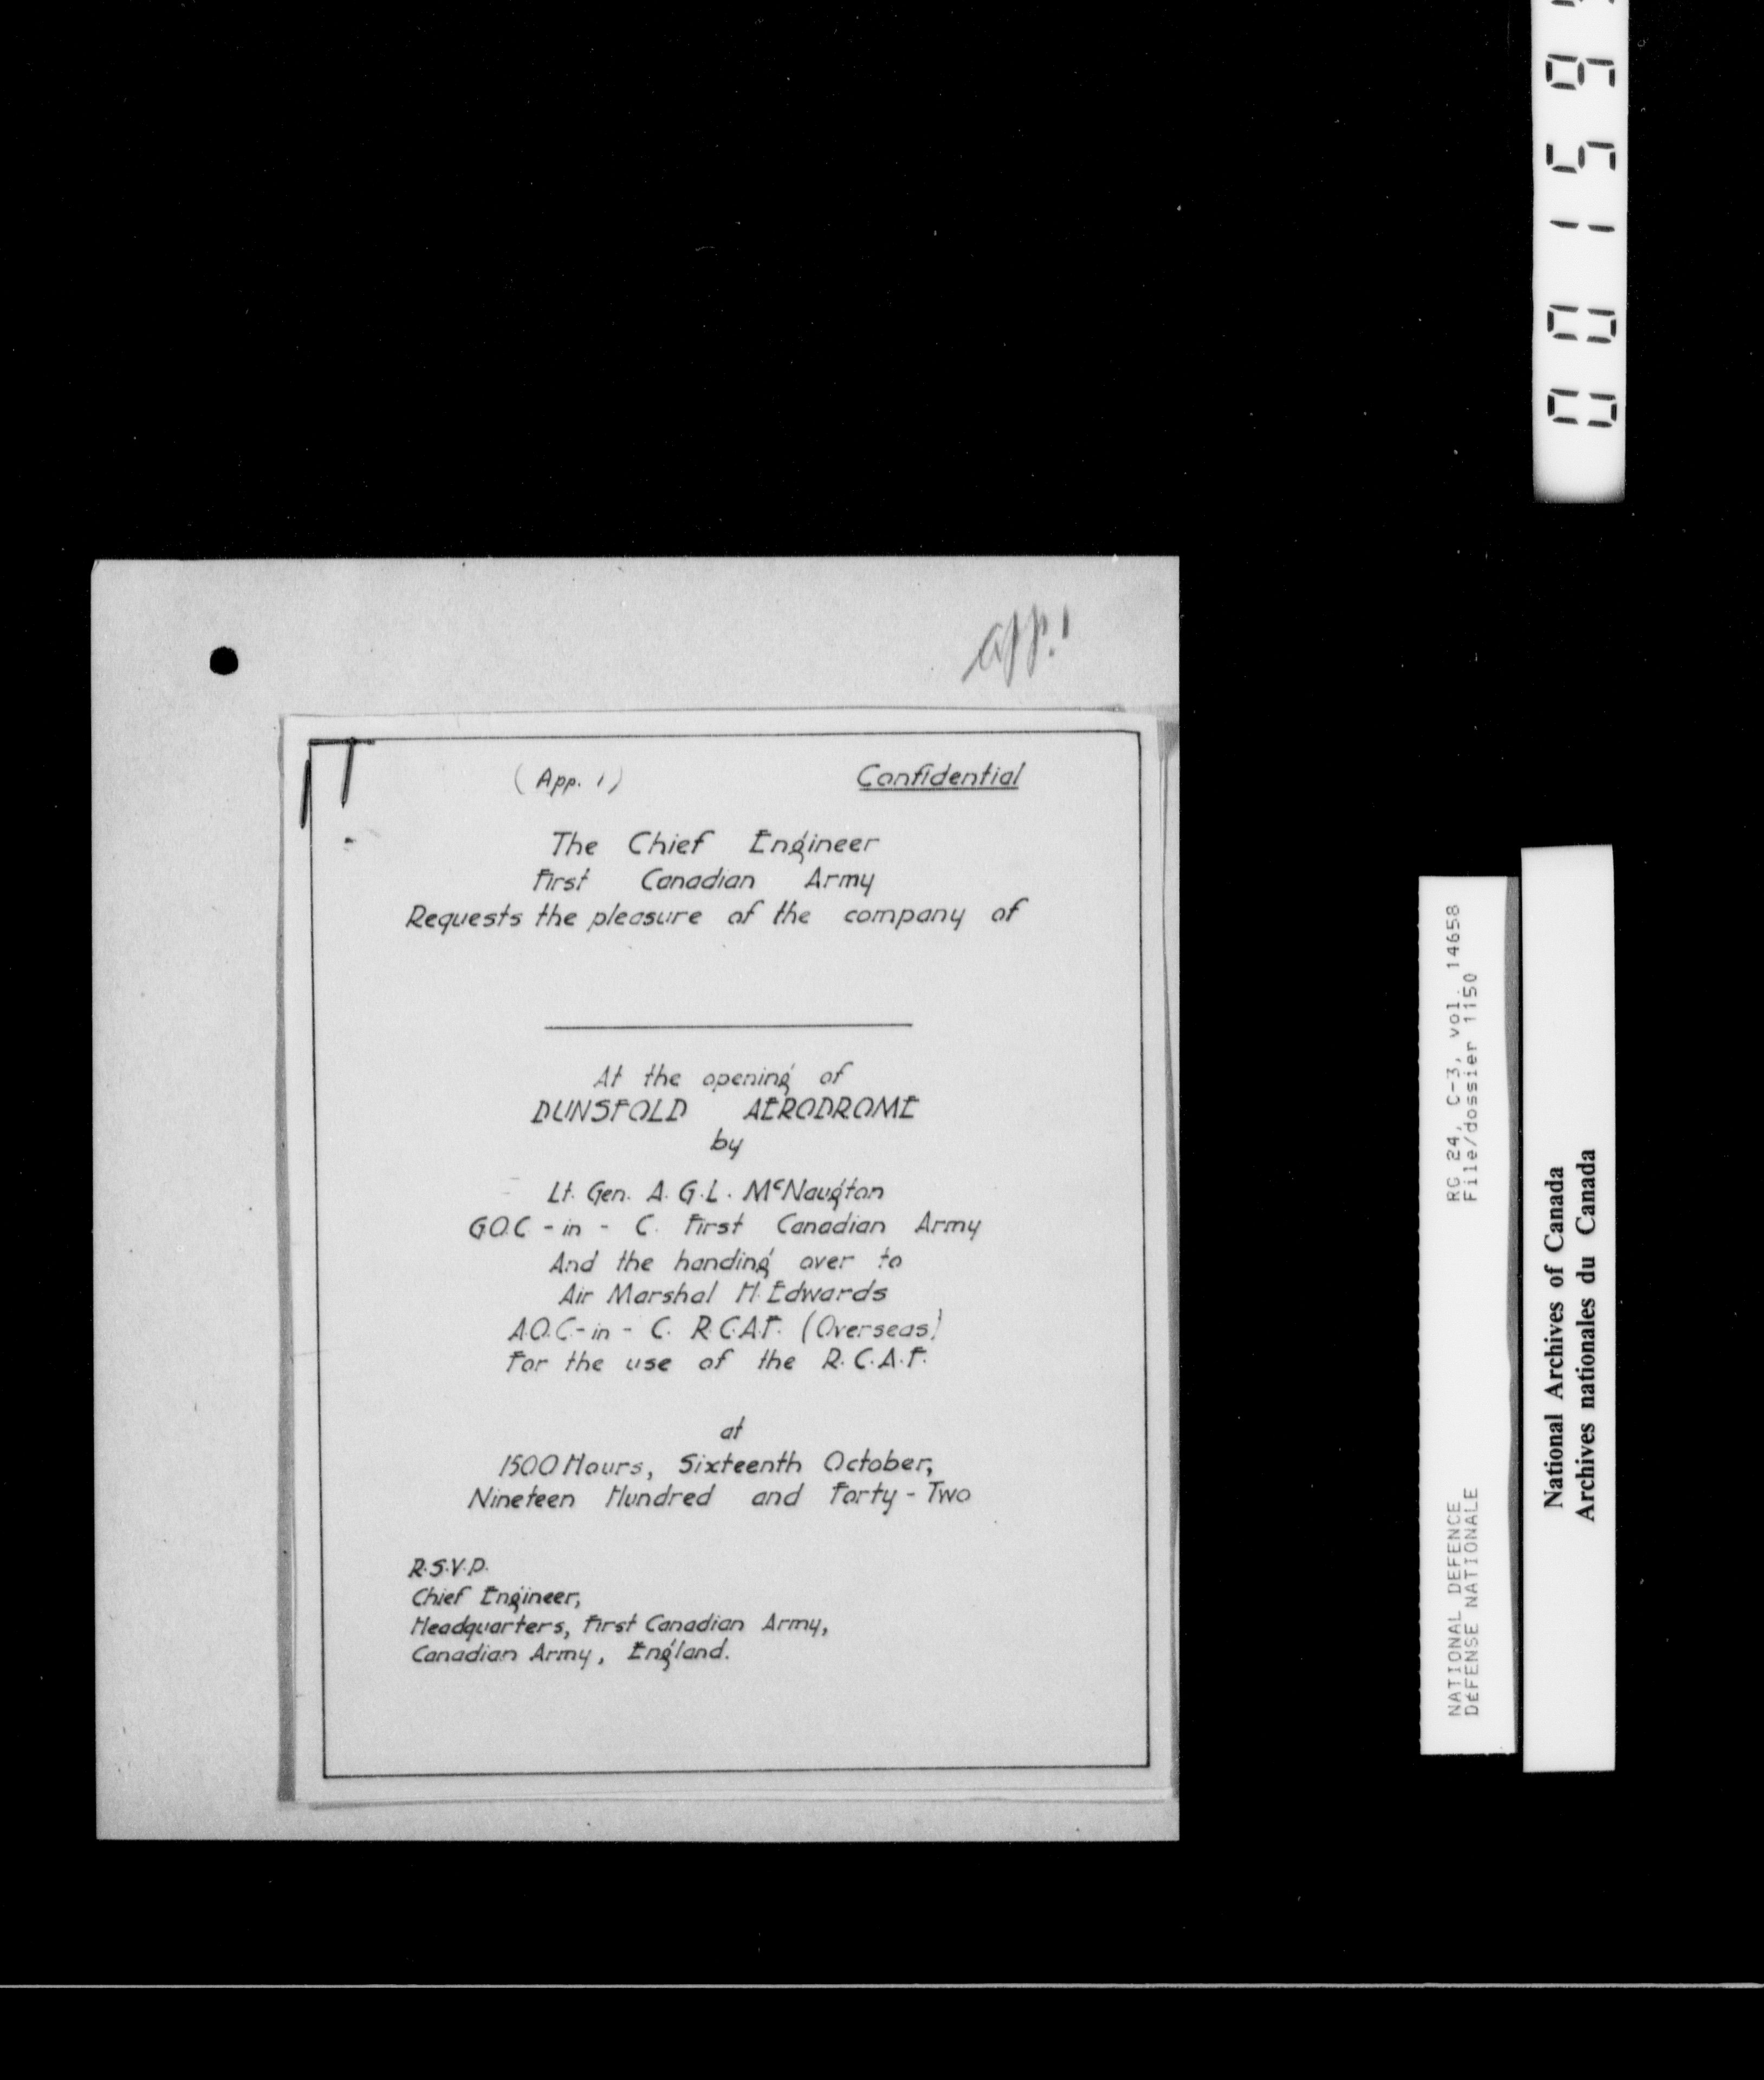 app. 1
(App. 1)
Confidential
The Chief Engineer
First Canadian Army
Requests the pleasure of the company of
At the opening of
DUNSFOLD AERODROME
by
Lt. Gen. A.G.L. McNaugton
G.O.C - in - C. First Canadian Army
And the handing over to
Air Marshal H. Edwards
A.O.C.- in - C. R.C.A.F. (Overseas)
For the use of the R.C.A.F.
at
1500 Hours, Sixteenth October,
Nineteen Hundred and Forty - Two
R.S.V.P.
Chief Engineer,
Headquarters, First Canadian Army,
Canadian Army, England.
NATIONAL DEFENCE RG 24, C-3, vol. 14658
DÉFENSE NATIONALE File/dossier 1150
National Archives of Canada
Archives nationales du Canada